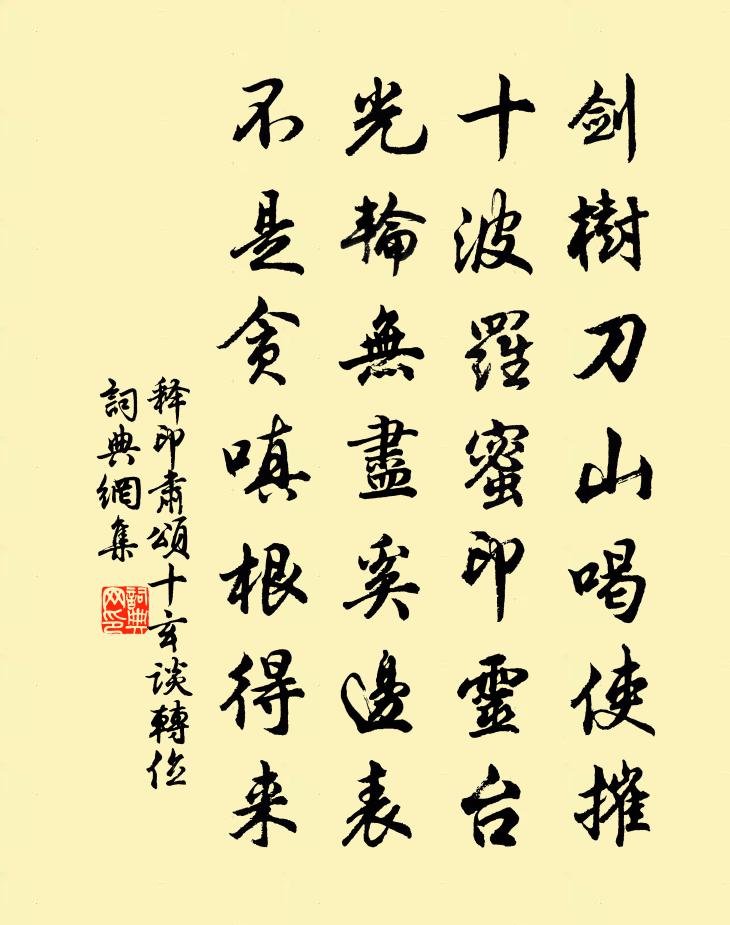 劍樹刀山喝使摧
十波羅蜜印靈台
光輪無盡奚邊表
不是貪嗔根得来
释印肅頌十玄談轉位
詞典網集
詞典网印